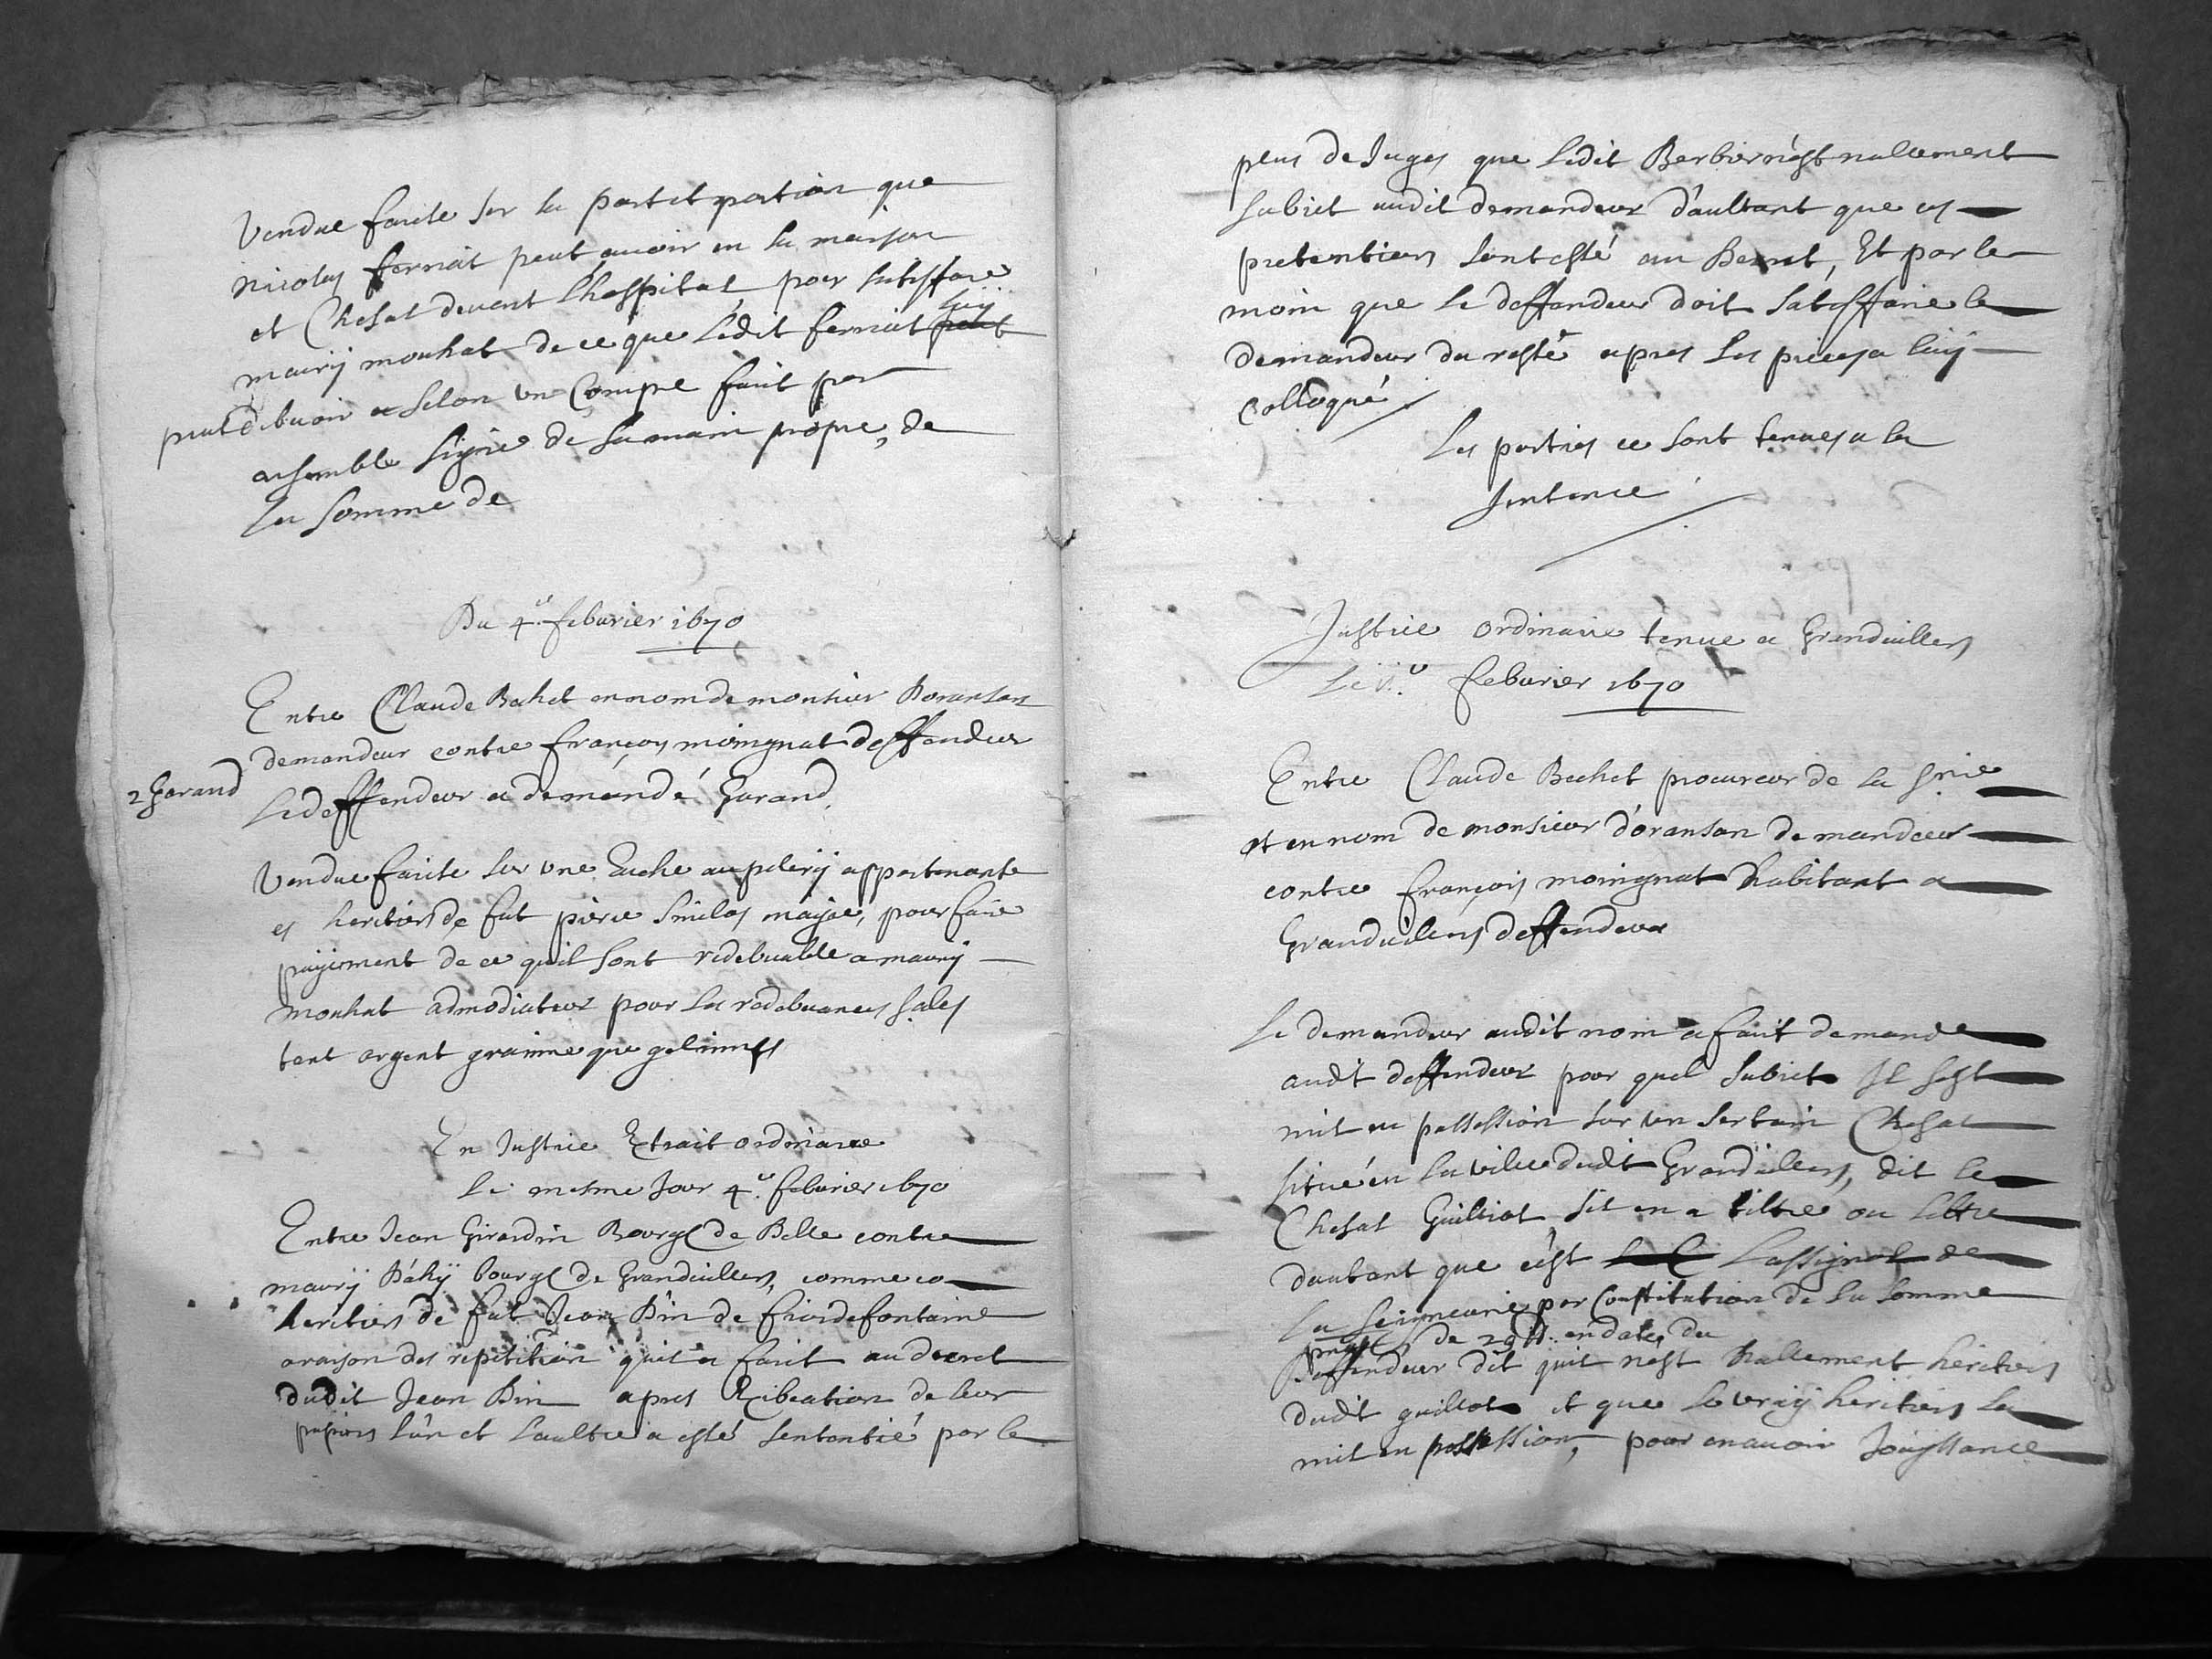 Vendue faicte sur la part et portion que
Nicolas ferriat peut auoir en la maison
et Chesal devant L'hospital pour satisffaire
maurÿ mouhat de ce que Ledit ferriat luÿ
peut debuoir a selon vn Compte fait par
ensemble Signé de sa main propre, de
La Somme de
Du 4.e feburier 1670
Entre Claude Bechet en nom de monsieur Doransan
demandeur contre françois moingnat deffendeur
2 Garand
Le deffendeur a demandé Garand
Vendue faicte sur vne Euche au pelerÿ appartenante
es heritiers de fut pierre maÿre, pour faire
paÿement de ce quil sont redebuable a maurÿ
mouhat admodiateur pour les redebuances
tant argent grainne que gelinnes
En Justice Extrait ordinaire
Le mesme Jour 4.e feburier 1670
Entre Jean Girardin Bourg de Belle contre
maurÿ bourg de Granduillers, comme co
heritiers de fut Jean Bin de froidefontaine
a raison des repetition quil a fait au decret
dudit Jean Bin apres de leur
papiers L'ún et Laultre a esté Sententié par le
plus de Juges que Ledit Berbier n'est nullement
Subiet audit demandeur d'aultant que ces
pretentions sont esté au Decret, Et par le
moin que le deffendeur doit satisffaire le
demandeur du resté apres Les pieces a luÿ
Colloqué
Les parties ce sont tenues a la
Sentence
Justice ordinaire tenue a Granduillers
Le feburier 1670
Entre Claude Bechet procureur de la Srie
et en nom de monsieur d'oransan demandeur
contre françois moingnat habitant a
Granduillers deffendeur
Le demandeur audit nom a fait demande
audt deffendeur pour quel subiet Il sest
mit en possession sur vn sertain Chesal
situé en la ville dudt Granduillers, dit le
Chesal Guilliat, sit en a tiltre ou lettre
dautant que c'est Lassignal de
La Seigneurie par Constitution de la somme
de 29 en date du
Deffendeur dit quil n'est Nullement heritiers
dudt guillot et que le vraÿ heritiers La
mit en possession, pour en auoir Joüissance